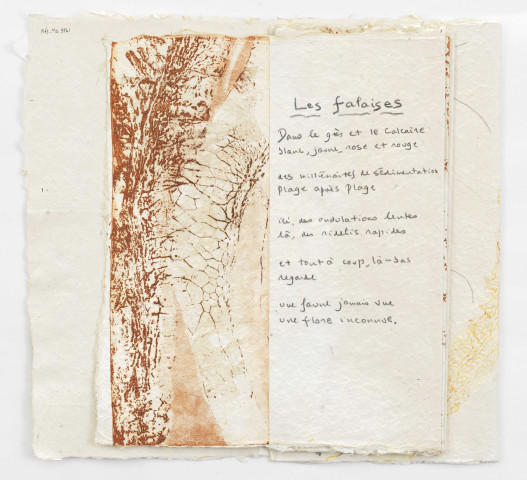 Rés. Ms. 9161
Les falaises
Dans le grès et le calcaire
blanc, jaune, rose et rouge
des millénaires de sédimentation
plage après plage
ici, des ondulations lentes
là, des ridelis rapides
et tout à coup, là-bas
regarde
une faune jamais vue
une flore inconnue.